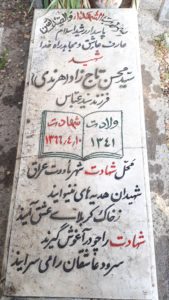 پاسدار رشید اسلام
عارف عاشق و مجاهد راه خدا
شهید
سید محسن تاج زاده هرندی
فرزند سید عباس
ولادت
۱۳۴۱
شهادت
۱۳۶۶/۴/۱۰
محل شهادت شهر ماووت عراق
شهیدان هدیه های نینوایند
ز خاک کربلای عشق آیند
شهادت را چو در آغوش گیرند
سرود عاشقان را می سرایند